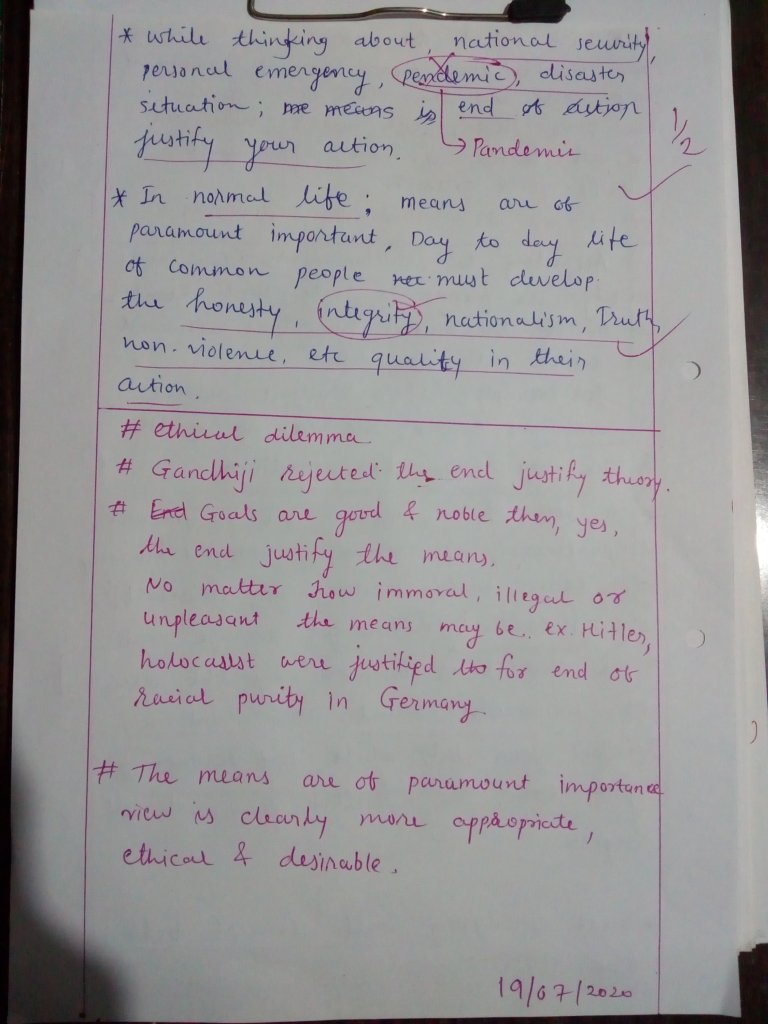 * While thinking about, national security,
personal emergency, pendemic, disaster
situation; the means is end of action
justify your action.
→ Pandemic
1/2
* In normal life; means are of
paramount important, Day to day life
of common people must develop
the honesty, integrity, nationalism, Truth,
non-violence, etc quality in their
action.
# ethical dilemma
# Gandhiji rejected the end justify theory.
# End Goals are good & noble then, yes,
the end justify the means.
No matter how immoral, illegal or
unpleasant the means may be. ex. Hitler,
holocaust were justified for end of
racial purity in Germany.
# The means are of paramount importance
view is clearly more appropriate,
ethical & desirable.
19/07/2020